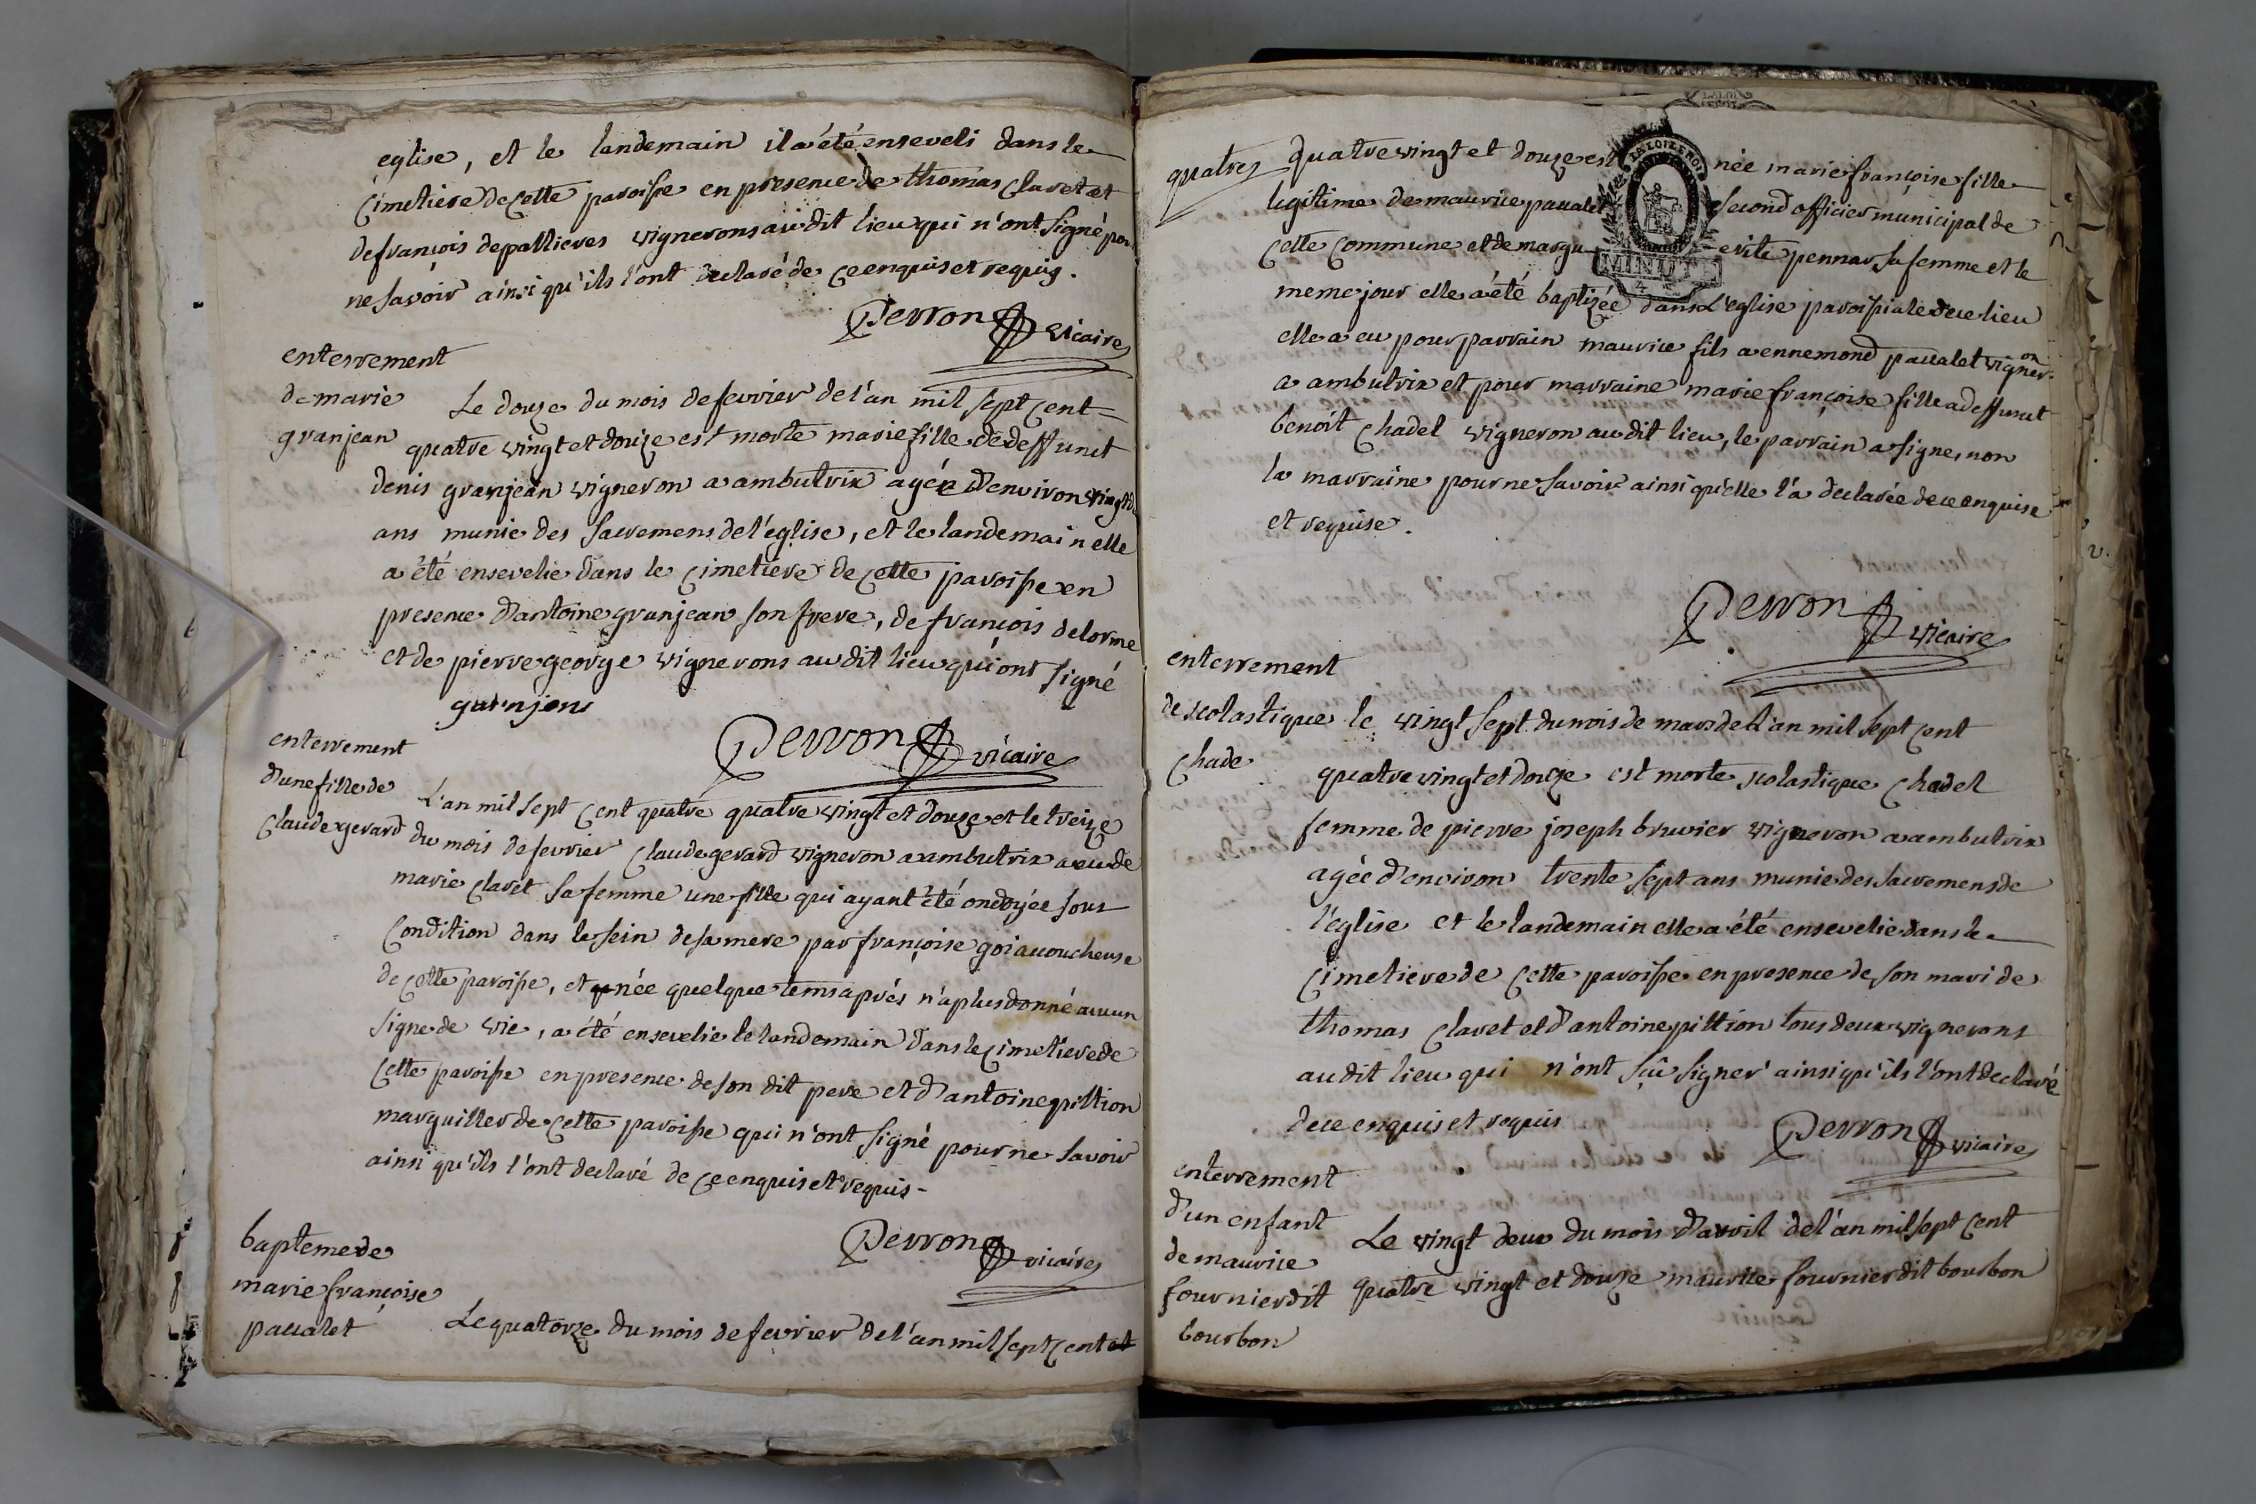 eglise, et le landemain il a été enseveli dans le
cimetiere de cette paroisse en presence de thomas claret et
de françois depallieres vignerons audit lieu qui n'ont signé pour
ne savoir ainsi qu'ils l'ont declaré de ce enquis et requis.
Perron vicaire
enterrement
de marie
granjean
Le douze du mois de fevrier de l'an mil sept cent
quatre vingt et douze est morte marie fille de deffunct
denis granjean vigneron a ambutrix agée d'environ vingt
ans munie des sacremens de l'église, et le landemain elle
a été ensevelie dans le cimetiere de cette paroisse en
presence d'antoine granjean son frere, de françois delorme
et de pierre george vignerons audit lieu qui ont signé
granjens
Perron vicaire
enterrement
d'une fille de
claude gerard
L'an mil sept cent quatre quatre vingt et douze et le treize
du mois de fevrier claude gerard vigneron a ambutrix a eu de
marie claret sa femme une fille qui ayant été ondoyée sous
condition dans le sein de sa mere par françoise goi accoucheuse
de cette paroisse, et née quelque tems après n'a plus donné aucun
signe de vie, a été ensevelie le landemain dans le cimetiere de
cette paroisse en presence de son dit pere et d'antoine pittion
marguiller de cette paroisse qui n'ont signé pour ne savoir
ainsi qu'ils l'ont declaré de ce enquis et requis -
Perron vicaire
bapteme de
marie françoise
paualet
Le quatorze du mois de fevrier de l'an mil sept cent et
quatre quatre vingt et douze est née marie françoise fille
LA LOI LE ROI
MINUTE
legitime de maurice paualet second officier municipal de
cette commune et de marguerite pennar sa femme et le
meme jour elle a été baptizée dans l'eglise paroissiale de ce lieu
elle a eu pour parrain maurice fils a ennemond paualet vigneron
a ambutrix et pour marraine marie françoise fille a deffunct
benoit chadel vigneron audit lieu, le parrain a signe, non
la marraine pour ne savoir ainsi qu'elle l'a declarée de ce enquise
et requise.
Perron vicaire
enterrement
de scolastique
chade
le vingt sept du mois de mars de l'an mil sept cent
quatre vingt et douze est morte scolastique chadel
femme de pierre joseph bruvier vigneron a ambutrix
agée d'environ trente sept ans munie des sacremens de
l'église et le landemain elle a été ensevelie dans le
cimetiere de cette paroisse en presence de son mari de
thomas claret et d'antoine pittion tous deux vignerons
audit lieu qui n'ont sçu signer ainsi qu'ils l'ont declaré
de ce enquis et requis
Perron vicaire
enterrement
d'un enfant
de maurice
fournier dit
bourbon
Le vingt deux du mois d'avril de l'an mil sept cent
quatre vingt et douze maurice fournier dit bourbon